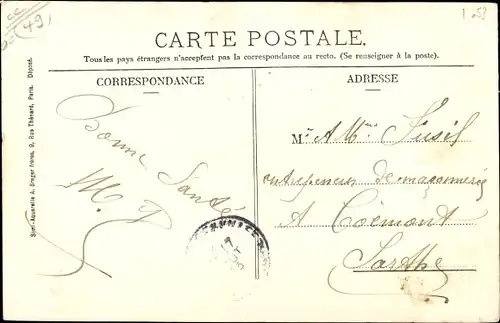 (49)
1.53
CARTE POSTALE.
Tous les pays étrangers n'acceptent pas la correspondance au recto. (Se renseigner à la poste).
CORRESPONDANCE
Bonne
Santé
ADRESSE
M. A Mme Fusil
entrepreneur de maçonnerie
A Coëmont
Sarthe
Simili-Aquarelle A. Breger frères, 9, Rue Thénard, Paris. Déposé.